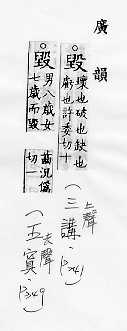 廣韻
毀
壞也破也缺也
虧也許委切十
(三講 上聲 P241
毀
男八歲女
七歲而毀
齒況偽
切一
(五寘 去聲 P349